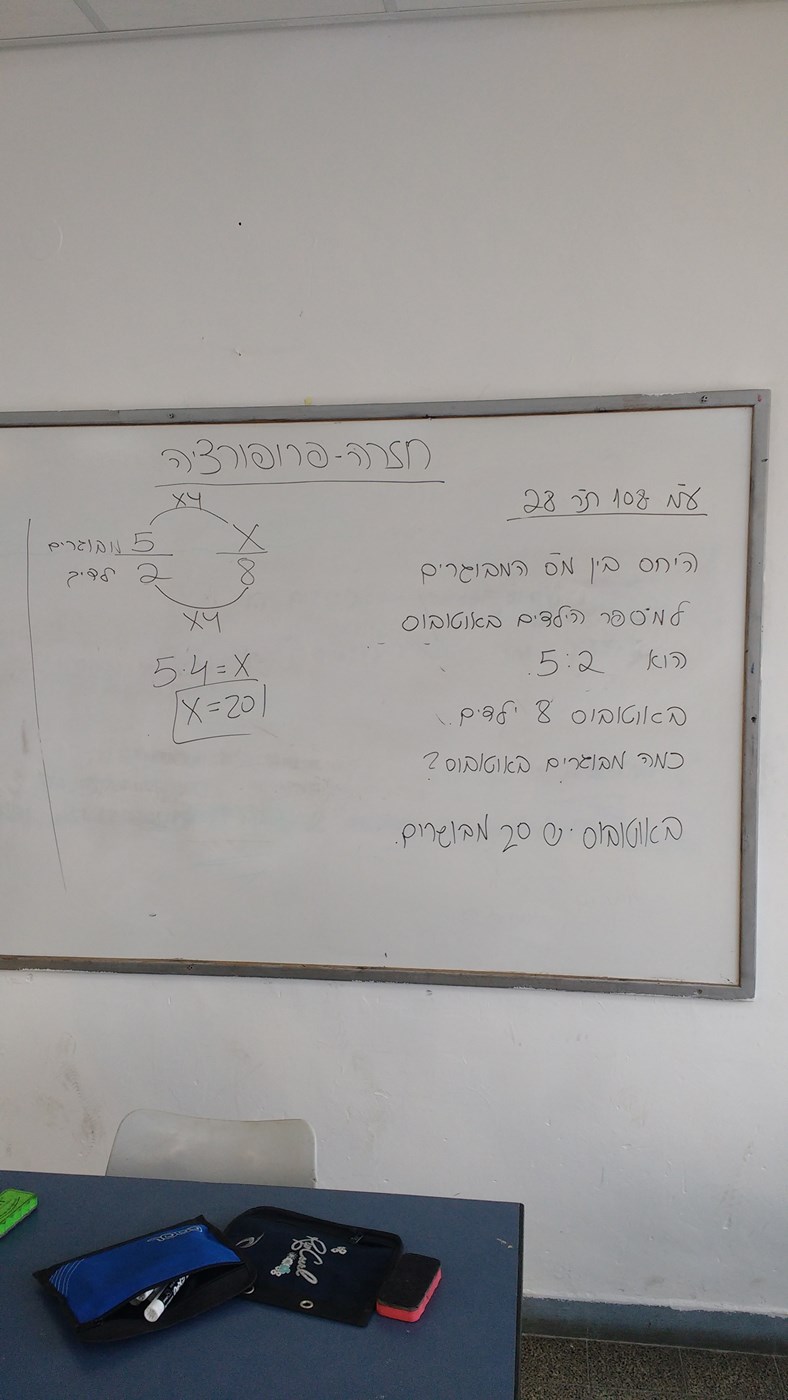 חזרה-פרופורציה
עמ' 108 תר' 28
היחס בין מס' המבוגרים
למספר הילדים באוטובוס
הוא 5:2.
באוטובוס 8 ילדים.
כמה מבוגרים באוטובוס?
באוטובוס יש 20 מבוגרים.
x4
מבוגרים 5 X
ילדים 2 8
x4
5·4=X
X=20